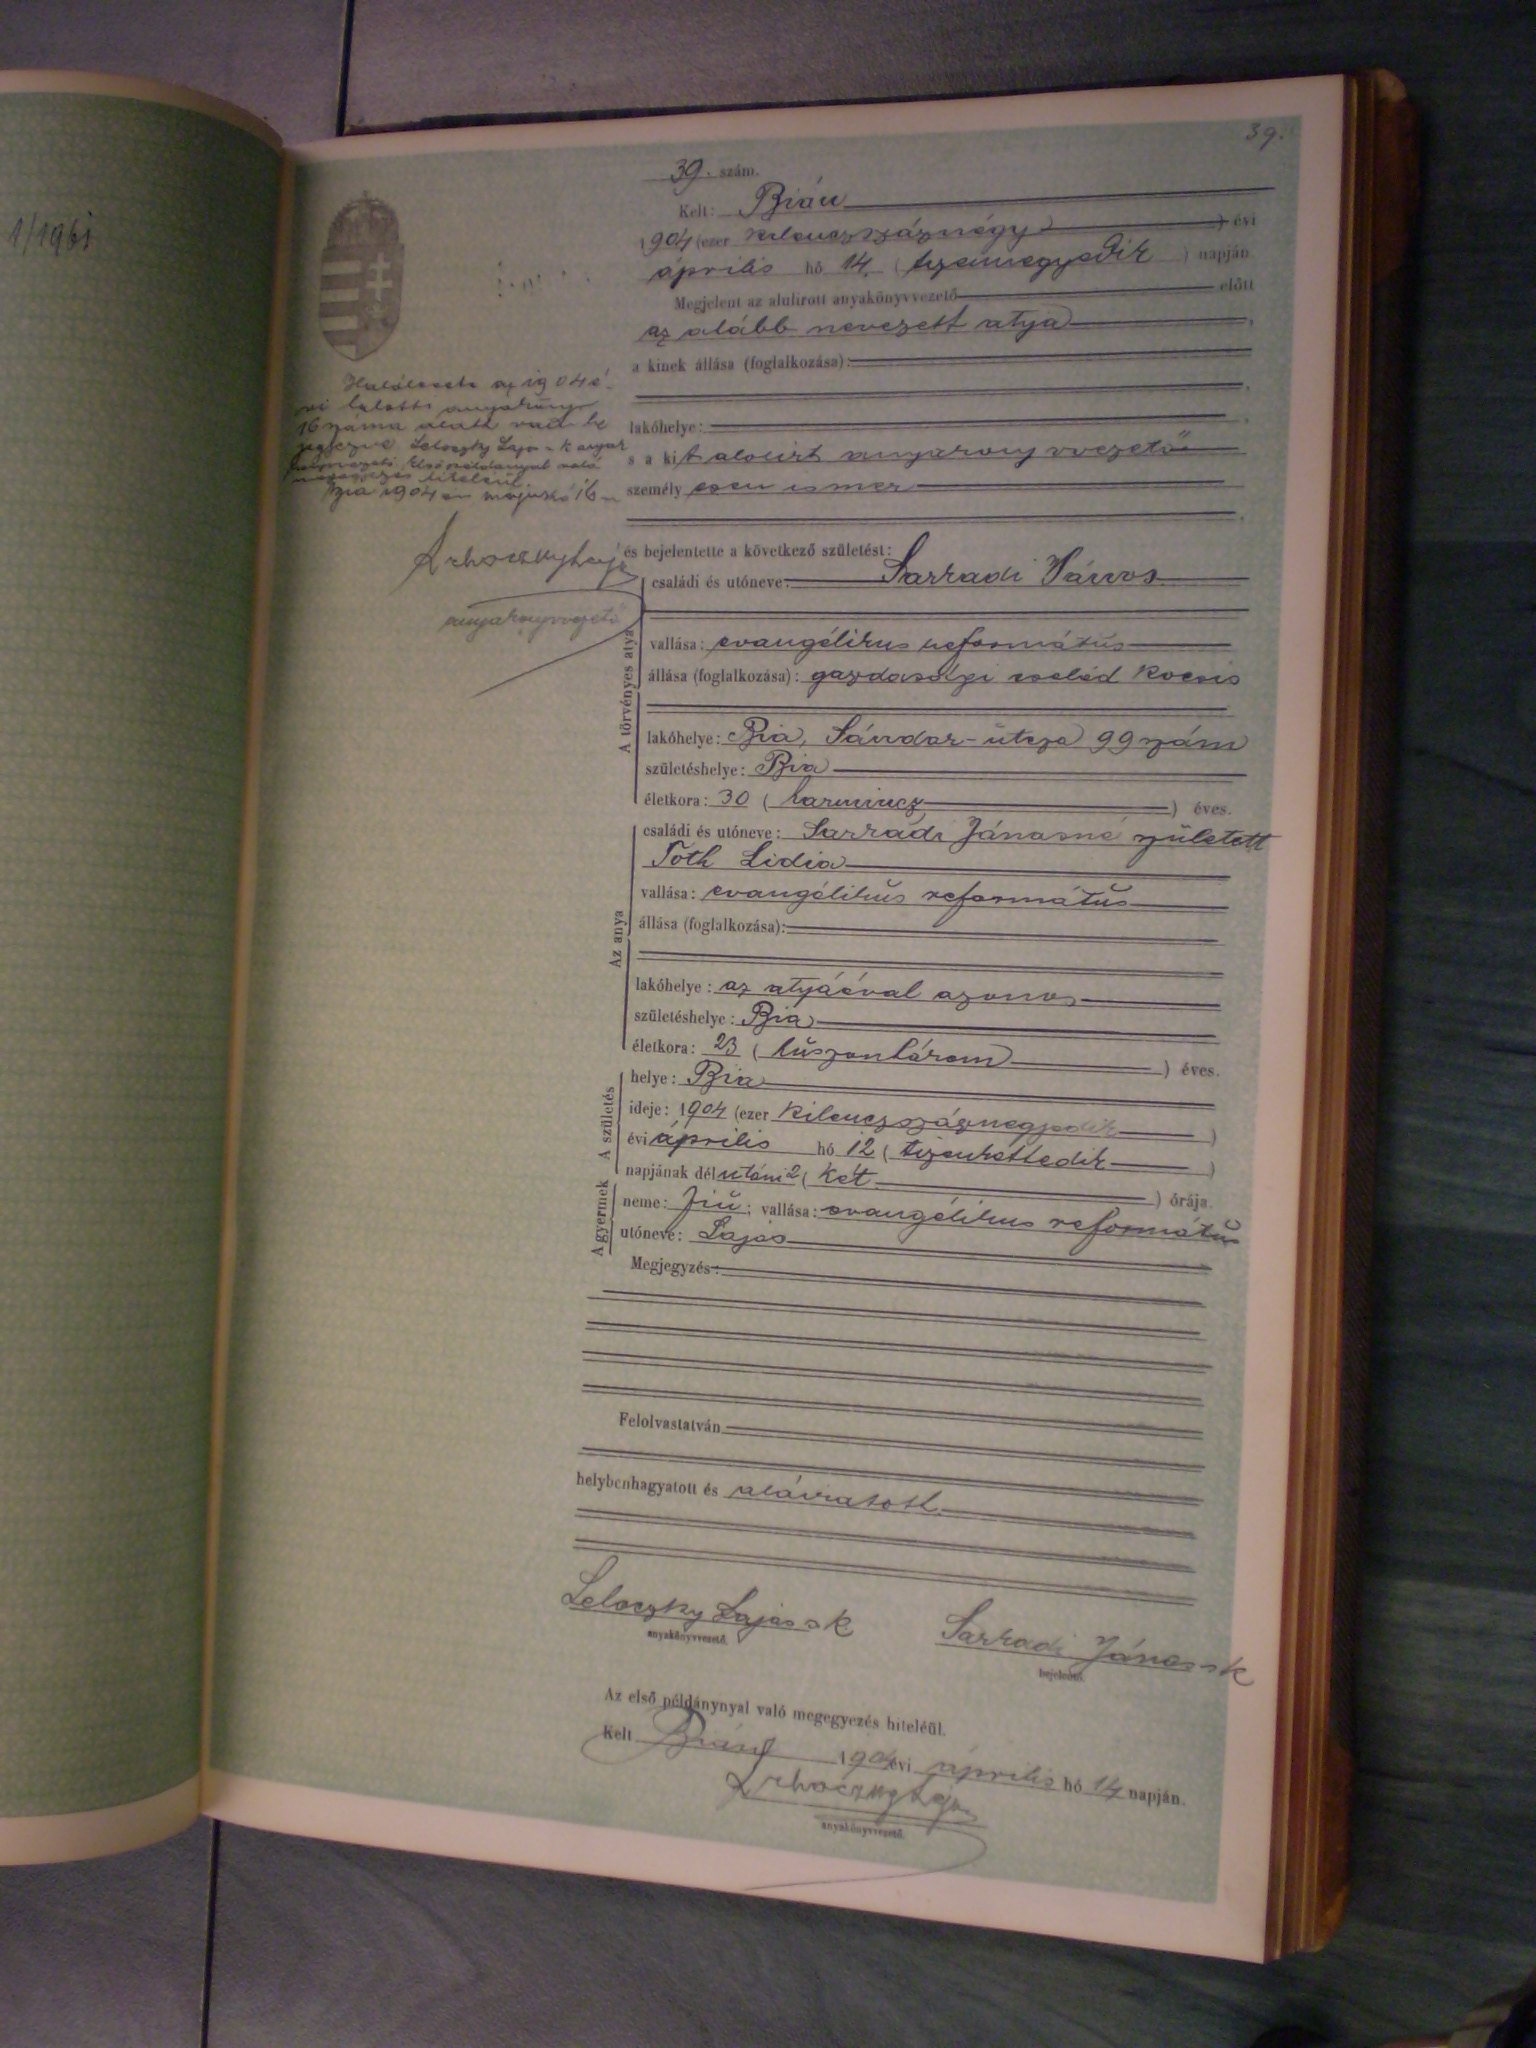 1/1961
39.
39. szám.
Kelt: Bián
1904 (ezer kilenczszáznégy) évi
április hó 14. (tizennegyedik) napján
Megjelent az alulírott anyakönyvvezető előtt
az alább nevezett atya,
a kinek állása (foglalkozása):
lakóhelye:
s a kit alólirt anyakönyvvezető
személyesen ismer
Halálesete az 1904 é-
vi halotti anyakönyv
16 száma alatt van be
jegyezve. Leloczky Lajos sk anyak
Első példánnyal való
megegyezés hiteléül
Bia 1904 én május hó 16 n
anyakönyvvezető
és bejelentette a következő születést:
A törvényes atya
családi és utóneve: Sarradi János
vallása: evangélikus református
állása (foglalkozása): gazdasági cseléd kocsis
lakóhelye: Bia, Sándor-utcza 99 szám
születéshelye: Bia
életkora: 30 (harmincz) éves.
Az anya
családi és utóneve: Sarradi Jánosné született
Toth Lidia
vallása: evangélikus református
állása (foglalkozása):
lakóhelye: az atyáéval azonos
születéshelye: Bia
életkora: 23 (huszonhárom) éves.
A születés
helye: Bia
ideje: 1904 (ezer kilenczszáznegyedik)
évi április hó 12 (tizenkettedik)
napjának délutáni 2 (két) órája.
A gyermek
neme: fiu; vallása: evangélikus református
utóneve: Lajos
Megjegyzés:
Felolvastatván
helybenhagyatott és aláiratott.
Leloczky Lajos sk Sarradi János sk
anyakönyvvezető. bejelentő.
Az első példánynyal való megegyezés hiteléül.
Kelt Bián 1904 évi április hó 14 napján.
anyakönyvvezető.